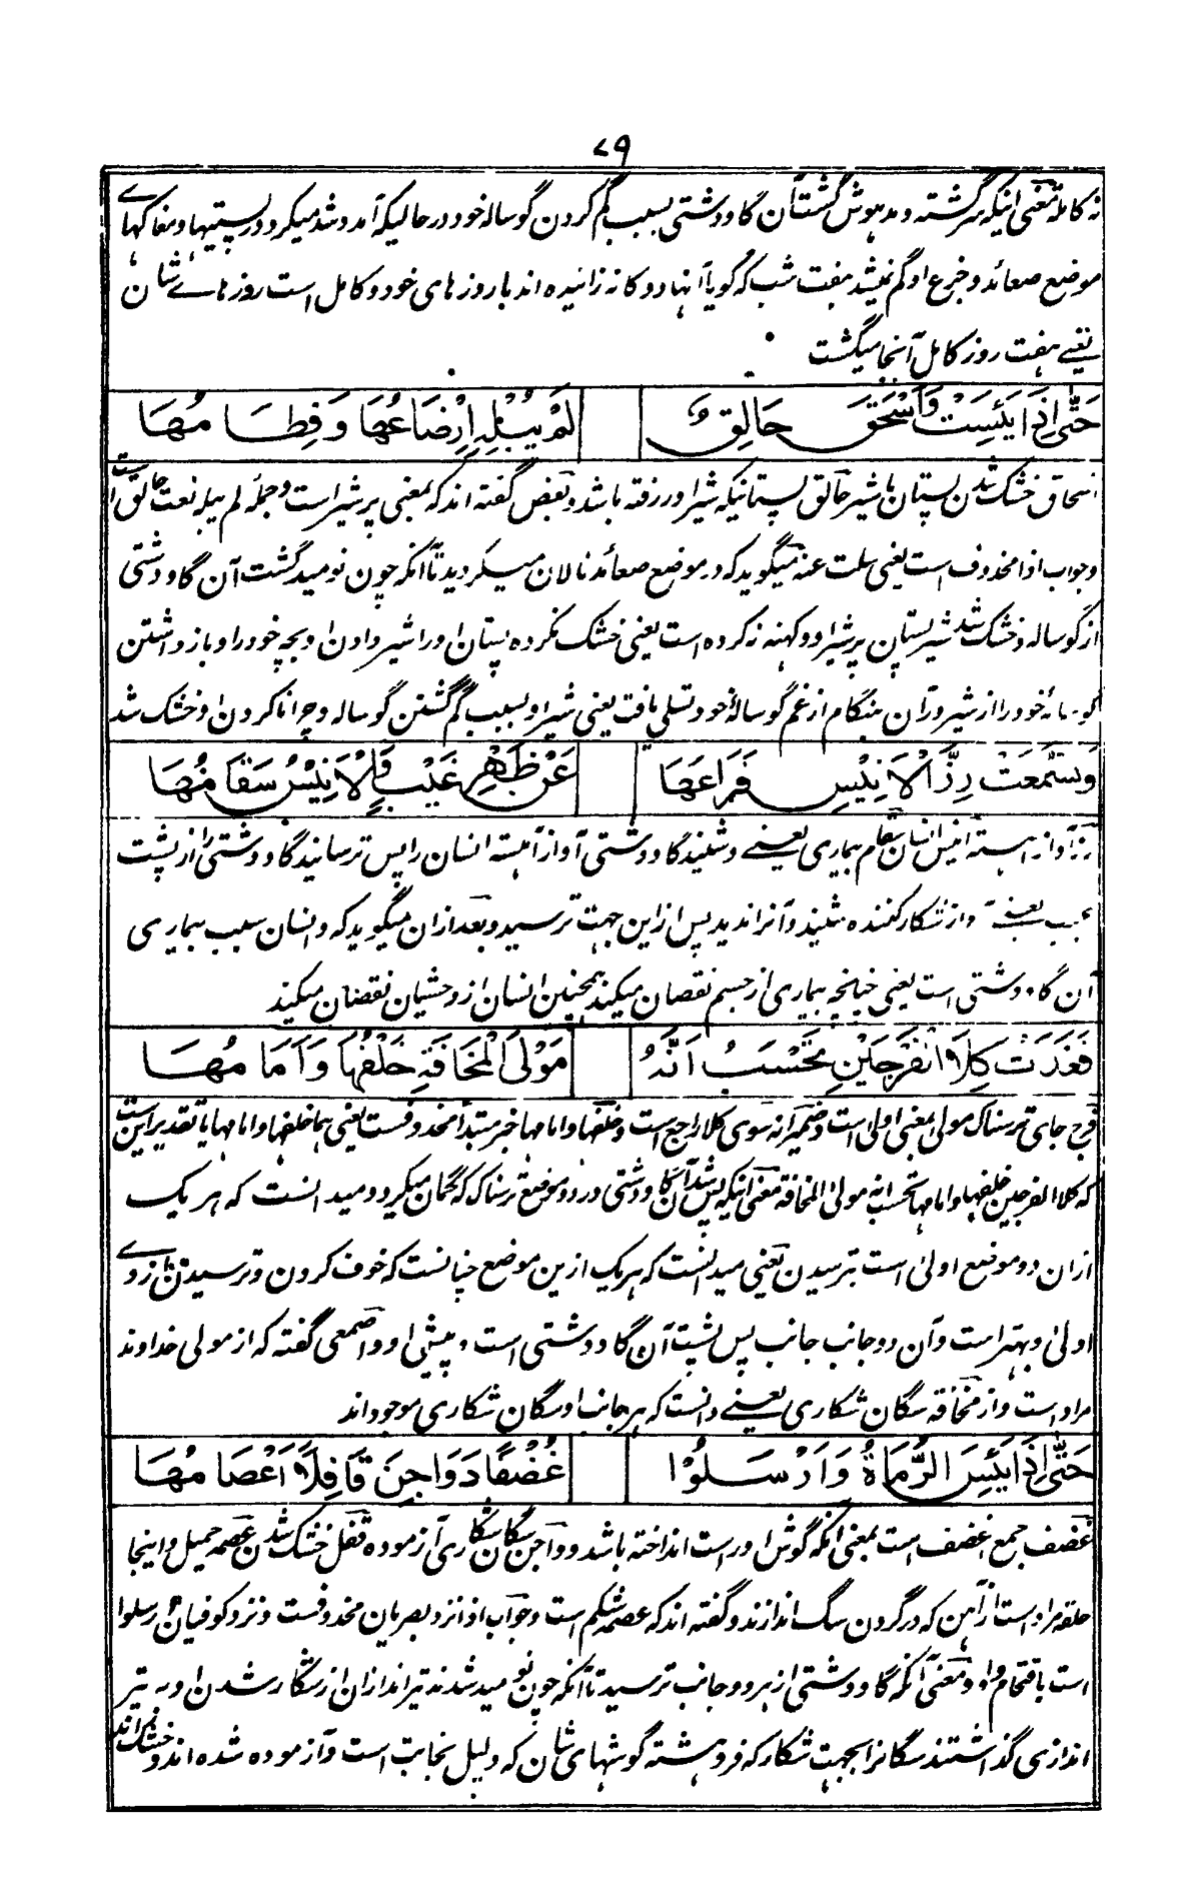 ٧٩
نه کامله معنی اینکه سرگشته و مدهوش گشت آن گاو دشتی بسبب گم کردن گوساله خود در حالیکه آمد و شد میکرد در پستیها و مغاکهای
موضع صعائد و جزع او کم نمیشد هفت شب که گویا آنها دوگانه زائیده اند با روز های خود و کامل است روز هائے شان
یعنے هفت روز کامل آنجا میگشت
حَتّٰی اِذَا یَئِسَتْ وَاَسْحَقَ حَالِقٌ لَمْ یُبْلِهِ اِرْضَاعُهَا وَفِطَامُهَا
اسحاق خشک شدن پستان با شیر حالق پستانیکه شیر او رفته باشد و بعض گفته اند که بمعنی پر شیر است و جمله لم یبله نعت حالق است
وجواب اذا محذوف است یعنی سلت عنه میگوید که در موضع صعائد نالان میگردید تا آنکه چون نومید گشت آن گاو دشتی
از گوساله و خشک شد شیر پستان پر شیر او و کهنه نکرده است یعنی خشک نکرده پستان او را شیر دادن او بچه خود را و باز داشتن
گوساله خود را از شیر و آن هنگام از غم گوسالۀ خود تسلی یافت یعنی شیر او بسبب گم گشتن گوساله و چرا ناکردن او خشک شد
وَتَسَمَّعَتْ رِزَّ الْاَنِیْسِ فَرَاعَهَا عَنْ ظَهْرِ غَیْبٍ وَالْاَنِیْسُ سَقَامُهَا
رز آواز آهسته انیس انسان سقام بیماری یعنے و شنید گاو دشتی آواز آهسته انسان را پس ترسانید گاو دشتی را از پشت
غیب یعنے آواز شکار کننده شنید و آنرا ندید پس ازین جهت ترسید و بعد ازان میگوید که و انسان سبب بیماری
آن گاو دشتی است یعنی چنانچه بیماری از جسم نقصان میکند همچنین انسان از وحشیان نقصان میکند
فَغَدَتْ کِلَا الْفَرْجَیْنِ تَحْسَبُ اَنَّهُ مَوْلَی الْمَخَافَةِ خَلْفُهَا وَاَمَامُهَا
فرج جای ترسناک مولی بمعنی اولی است و ضمیر انه سوی کلا راجع است و خلفها و امامها خبر مبتدأ محذوفست یعنی هما خلفها و امامها یا تقدیر این است
که کلا الفرجین خلفها و امامها تحسب انه مولی المخافة معنی اینکه پس شد آن گاو دشتی در دو موضع ترسناک که گمان میکرد و میدانست که هر یک
ازان دو موضع اولیٰ است بترسیدن یعنی میدانست که هر یک ازین موضع چنانست که خوف کردن و ترسیدن از وے
اولیٰ و بهتر است و آن دو جانب جانب پس پشت آن گاو دشتی است و پیش او و اصمعی گفته که از مولی خداوند
مراد است و از مخافة سگان شکاری یعنے دانست که هر جانب او سگان شکاری موجود اند
حَتّٰی اِذَا یَئِسَ الرُّمَاةُ وَاَرْسَلُوْا غُضْفًا دَوَاجِنَ قَافِلًا اَعْصَامُهَا
غضف جمع اغضف است بمعنی آنکه گوش او راست انداخته باشد و دواجن سگان شکاری آزموده قفل خشک شدن عصمه حمیل و اینجا
حلقه مراد است از آهن که در گردن سگ اندازند و گفته اند که عصمه شکم است و جواب اذا نزد بصریان محذوفست و نزد کوفیان ارسلوا
است باقحام واو و معنی آنکه گاو دشتی از هر دو جانب ترسید تا آنکه چون نومید شدند تیر اندازان از شکار شدن او به تیر
اندازی گذاشتند سگانرا بجهت شکار که فروهشته گوشهای شان که دلیل نجابت است و آزموده شده اند و خشک اند